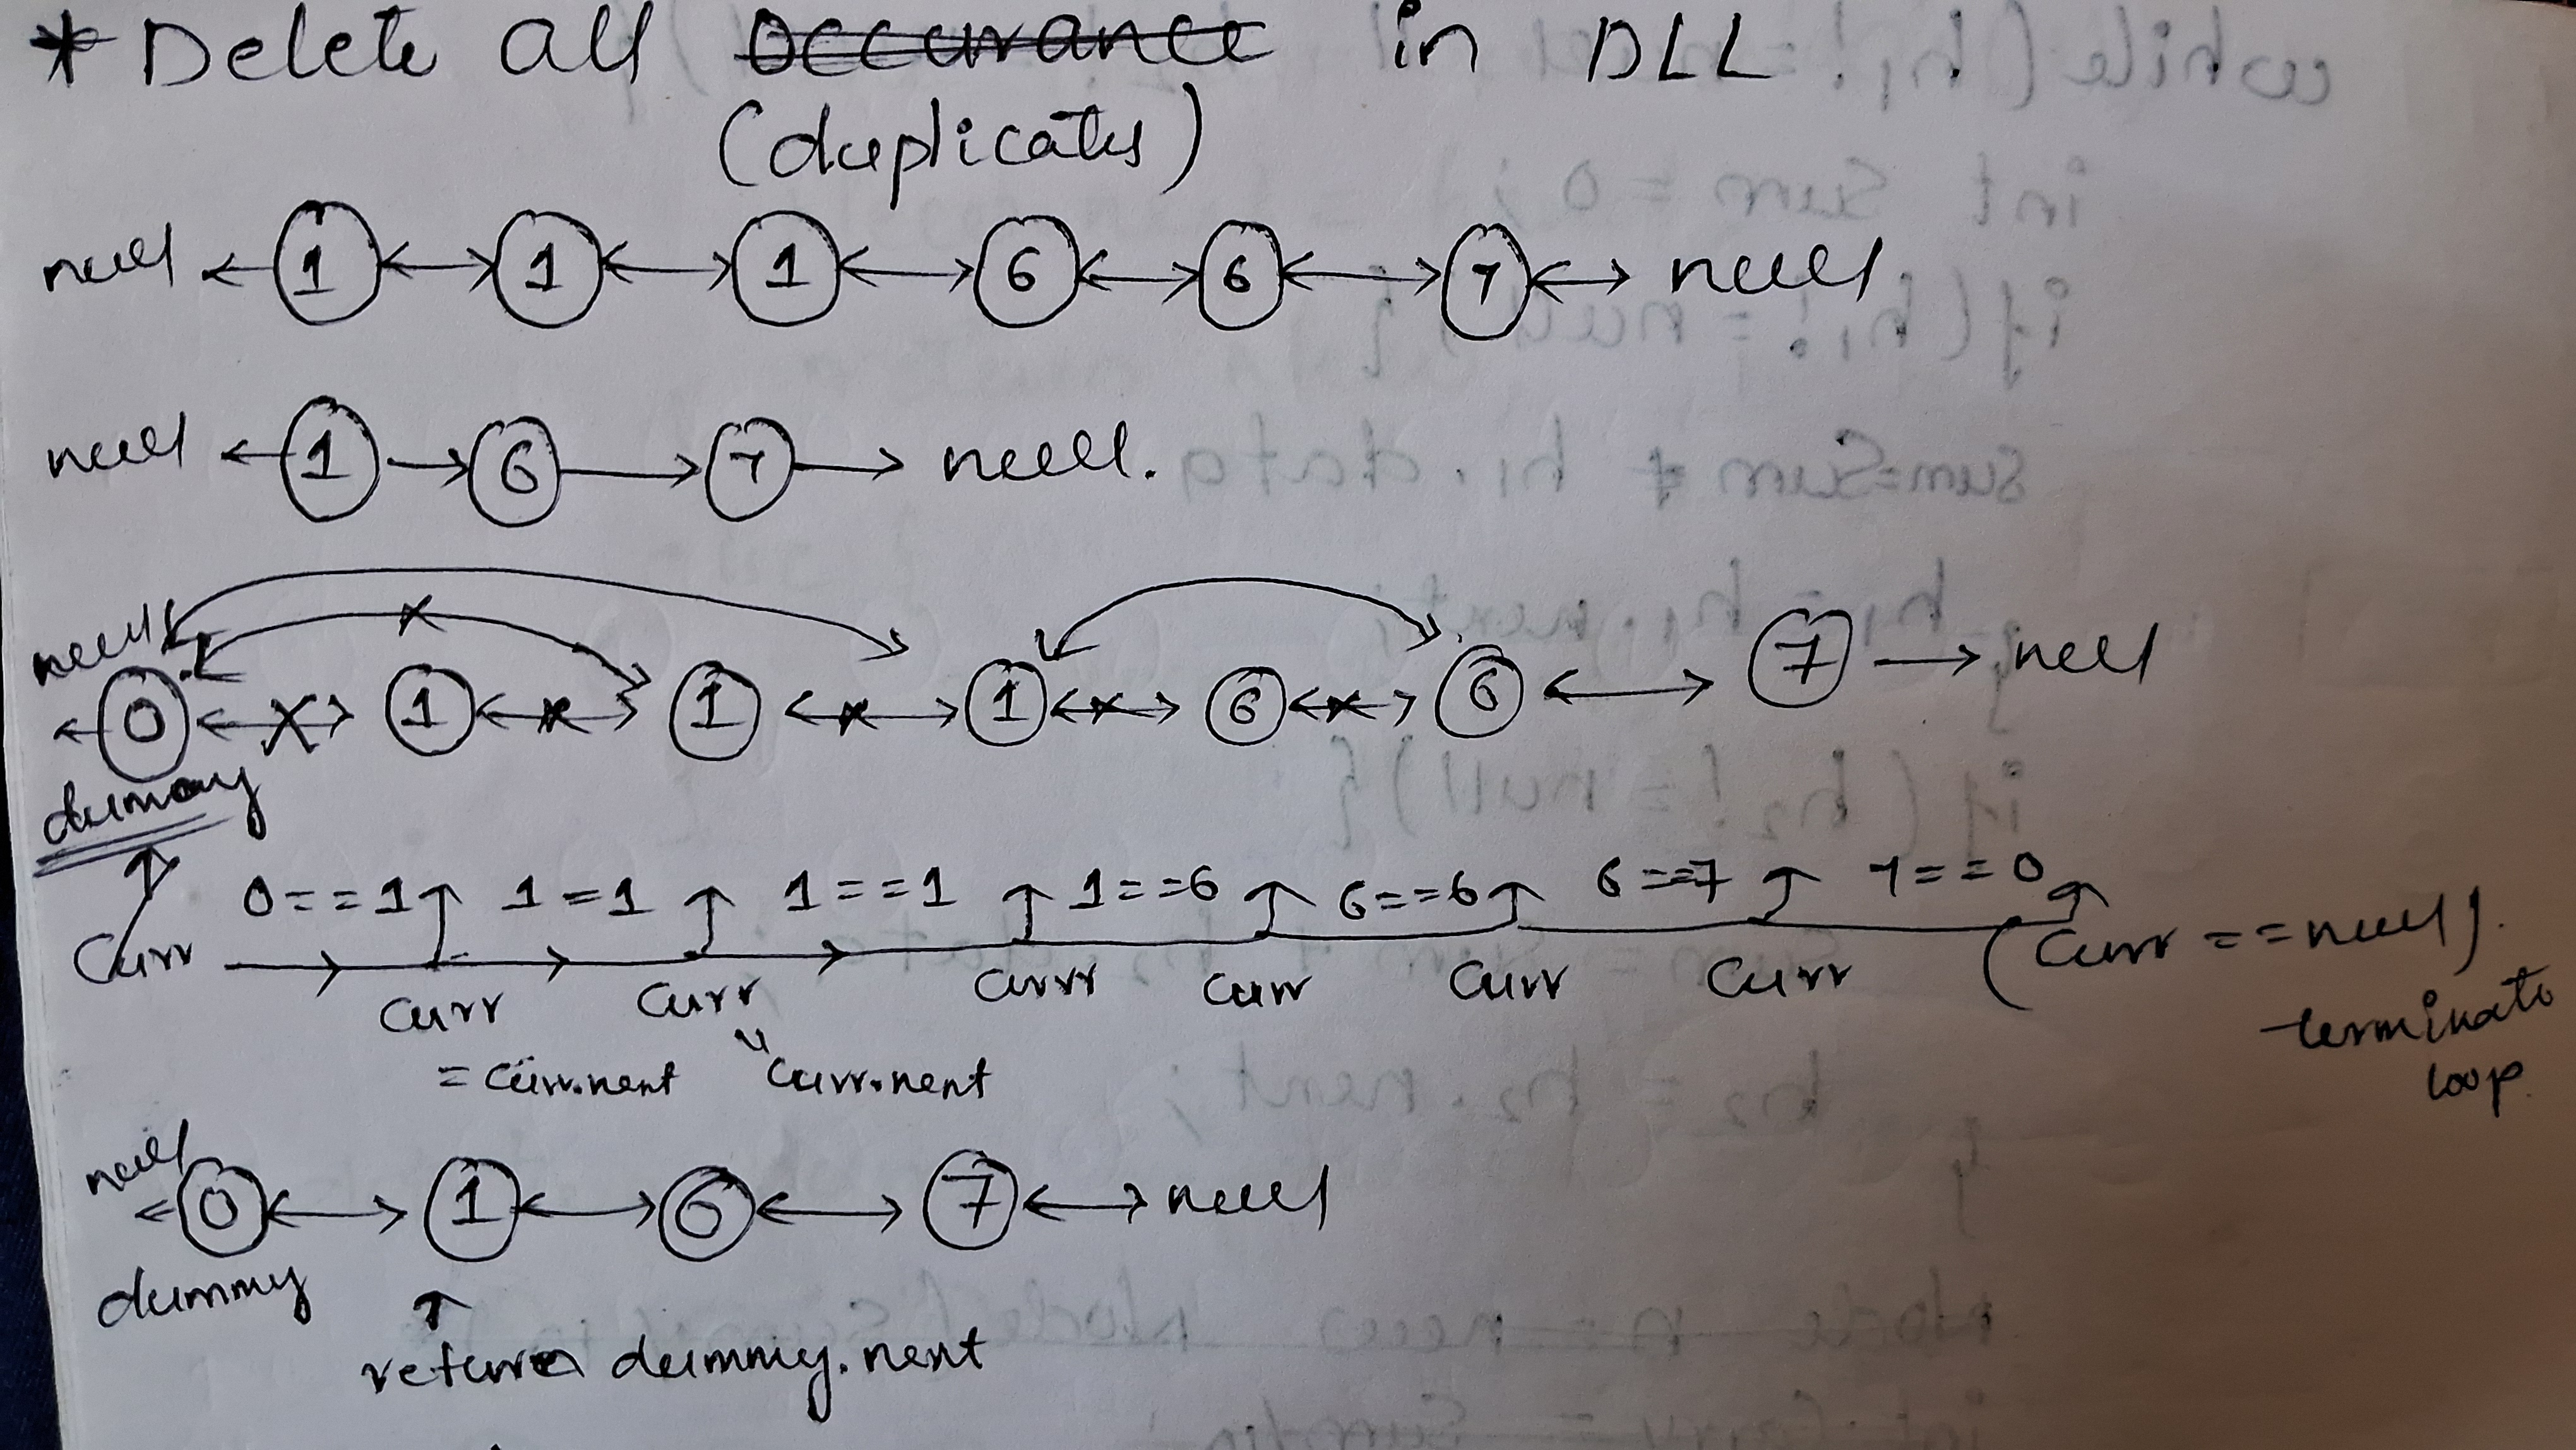 * Delete all Occurance in DLL
(duplicates)
null ← 1 ↔ 1 ↔ 1 ↔ 6 ↔ 6 ↔ 7 ↔ null
null ← 1 → 6 → 7 → null.
null ← 0 ↔ 1 ↔ 1 ↔ 1 ↔ 6 ↔ 6 ↔ 7 → null
dummy
0==1 1=1 1==1 1==6 6==6 6==7 7==0
Curr → curr curr curr curr curr curr (curr == null).
= curr.next curr.next - terminate
loop.
null ← 0 ↔ 1 ↔ 6 ↔ 7 ↔ null
dummy ↑
return dummy.next